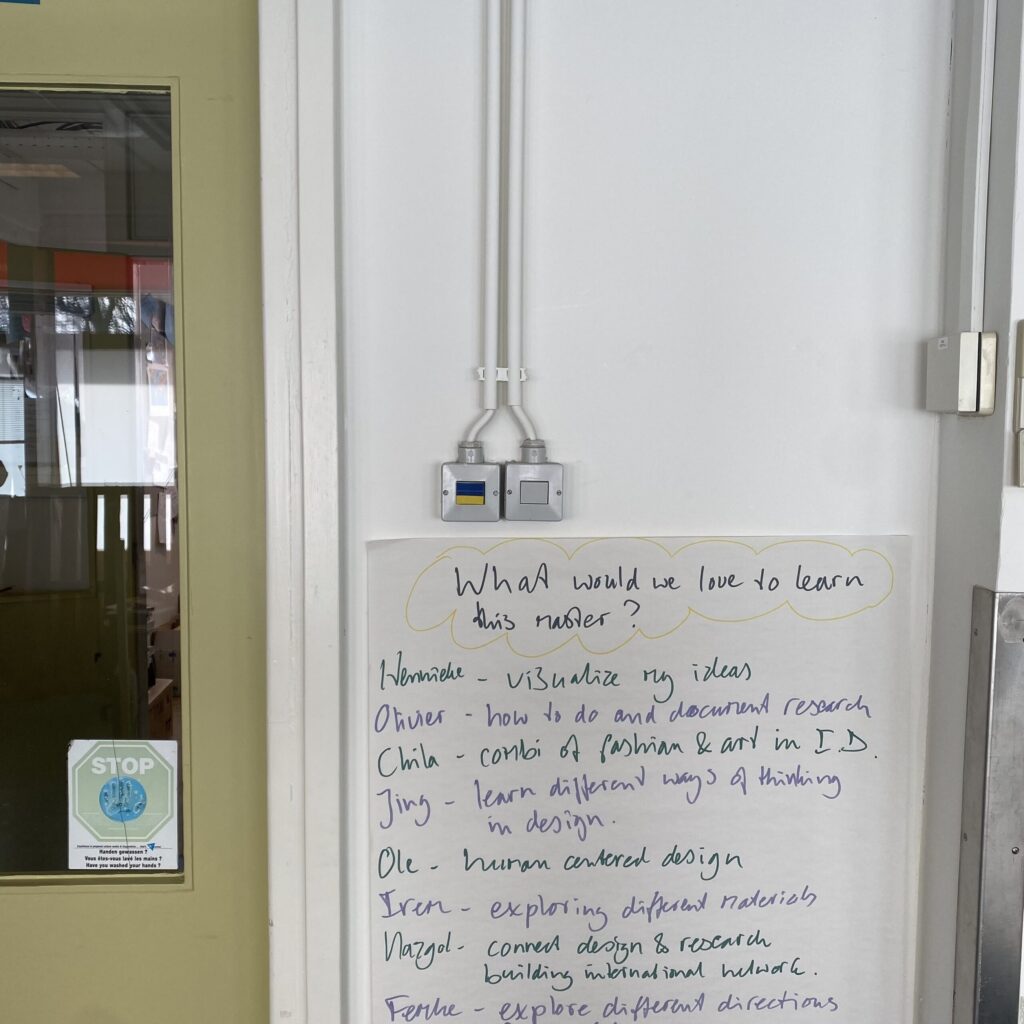 What would we love to learn
this master?
Hennieke - visualize my ideas
Olivier - how to do and document research
Chila - combi of fashion & art in I.D.
Jing - learn different ways of thinking
in design.
Ole - human centered design
Irem - exploring different materials
Nazgol - connect design & research
building international network.
Femke - explore different directions
STOP
Handen gewassen ?
Vous êtes-vous lavé les mains ?
Have you washed your hands ?